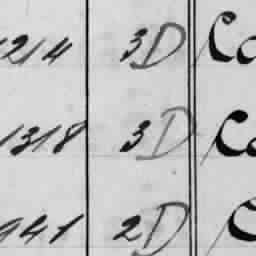 1214 3D Co
1318 3D Co
941 2D C